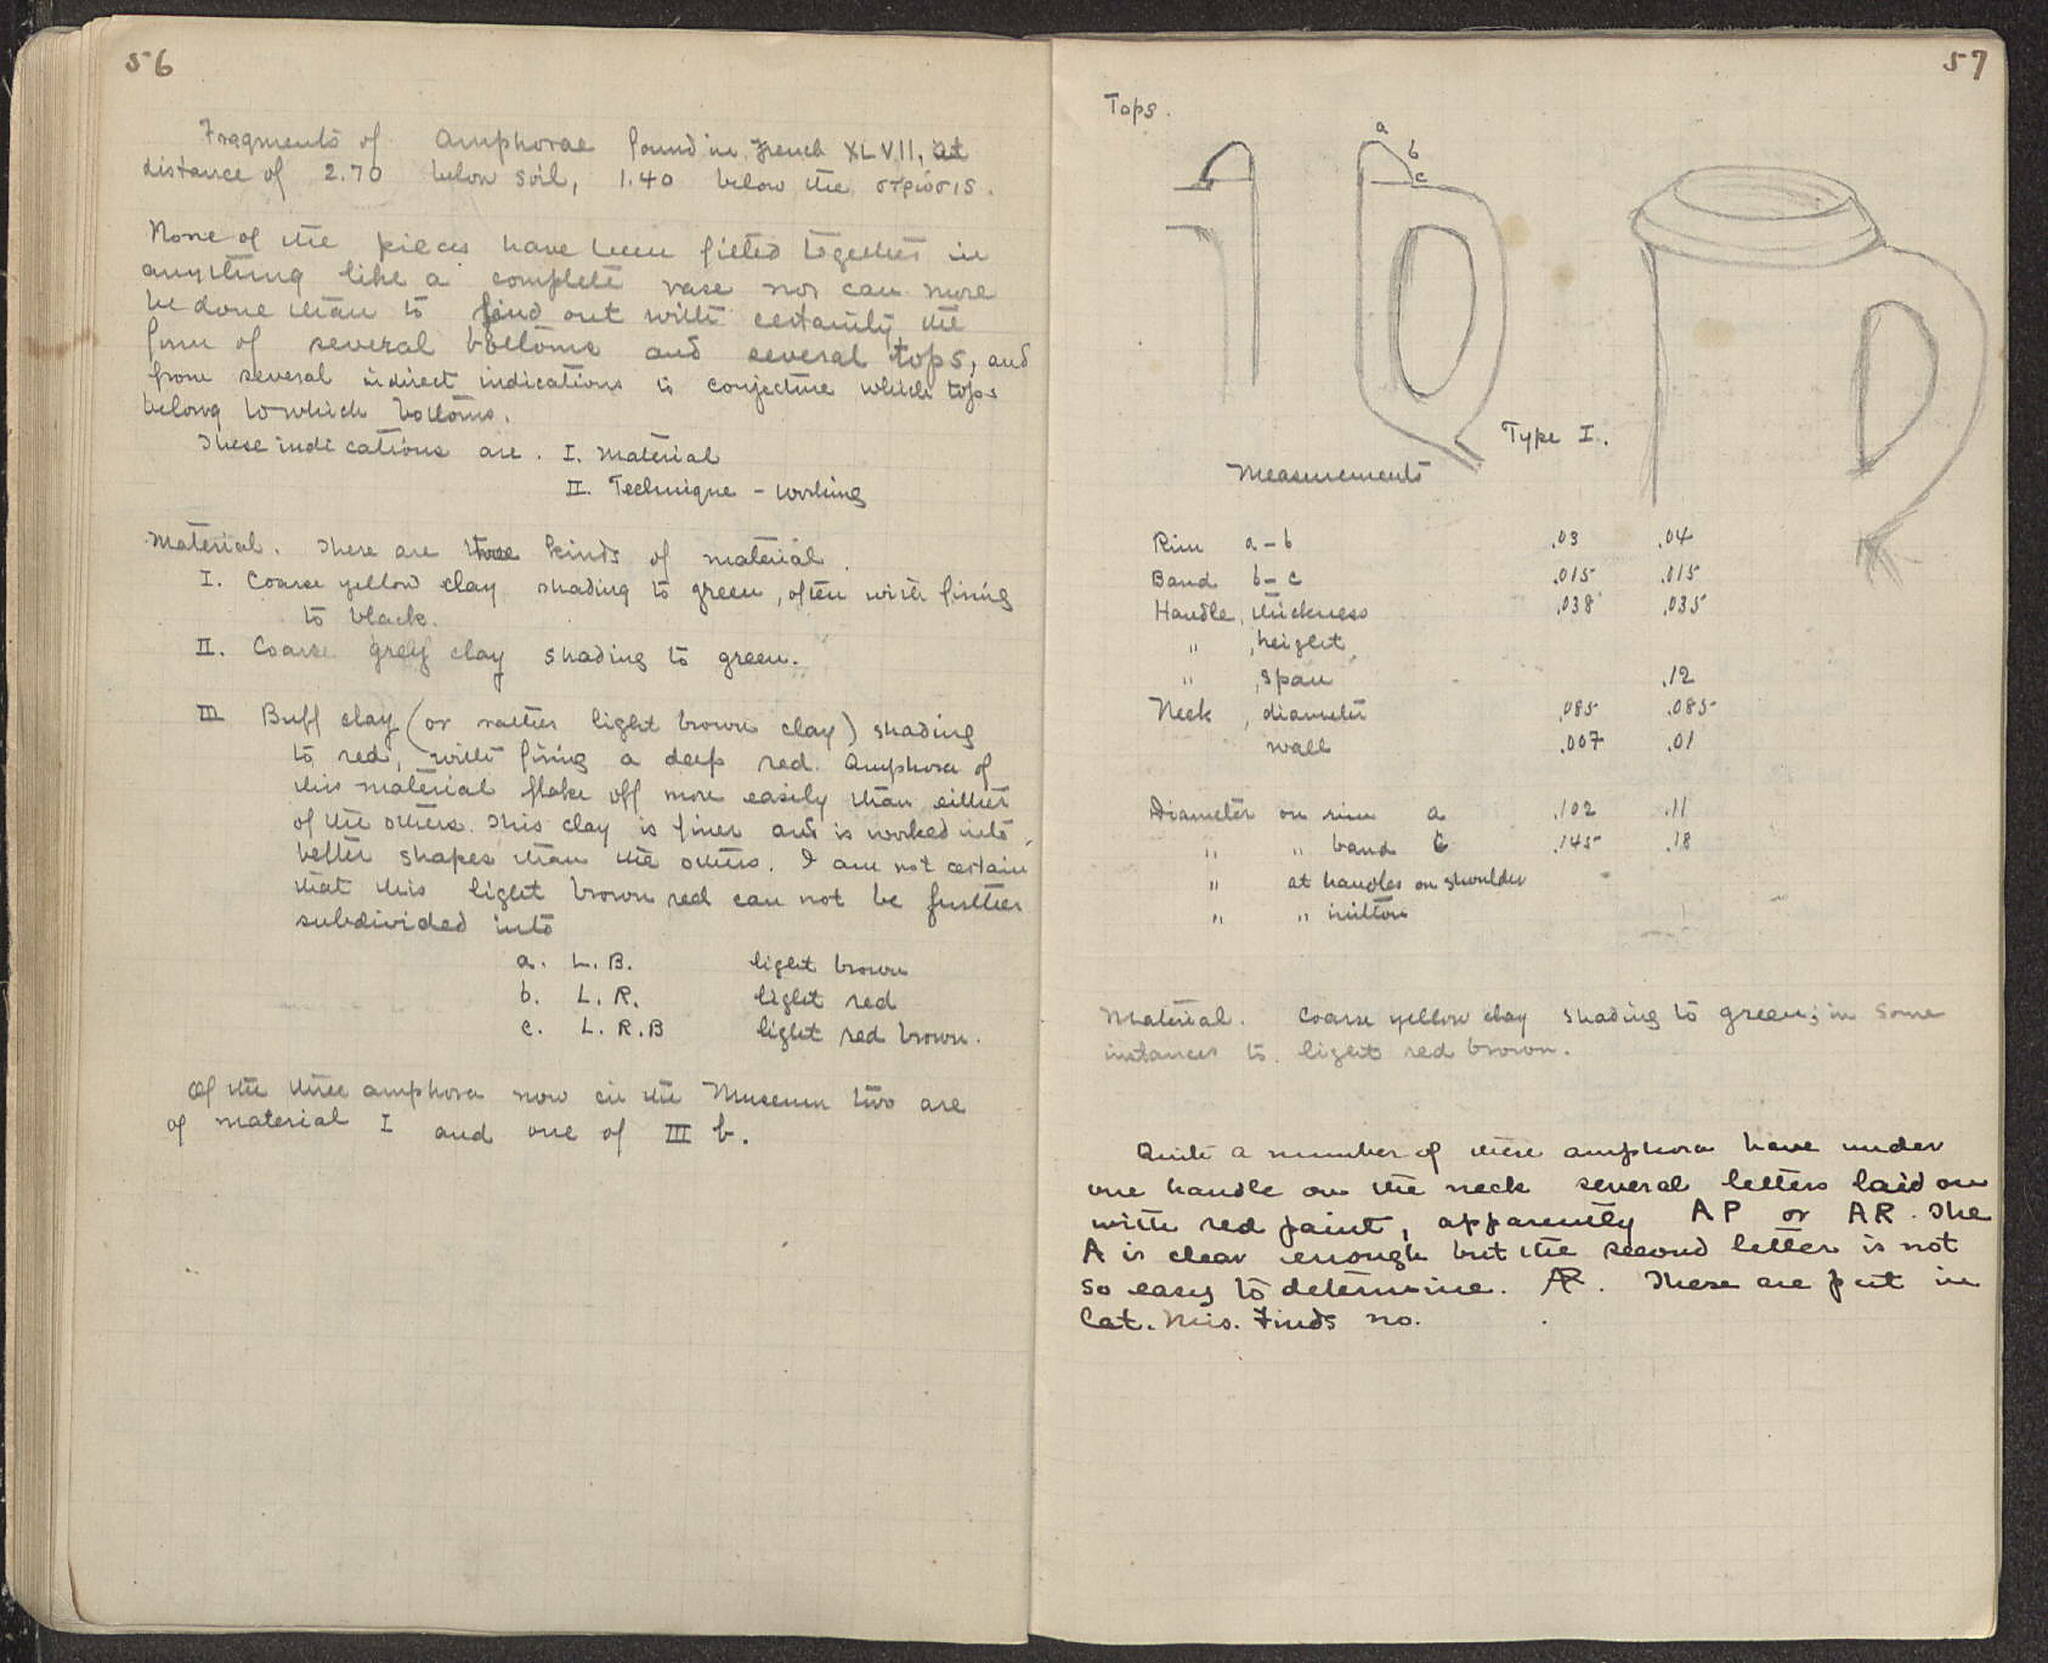 56
Fragments of Amphorae found in Trench XLVII, at
distance of 2.70 below soil, 1.40 below the στρῶσις.
None of the pieces have been fitted together in
anything like a complete vase nor can more
be done than to find out with certainty the
form of several bottoms and several tops, and
from several indirect indications to conjecture which tops
belong to which bottoms.
These indications are. I. Material
II. Technique - working
Material. There are three kinds of material.
I. Coarse yellow clay shading to green, often with firing
to black.
II. Coarse grey clay shading to green.
III Buff clay (or rather light brown clay) shading
to red, with firing a deep red. Amphora of
this material flake off more easily than either
of the others. This clay is finer and is worked into
better shapes than the others. I am not certain
that this light brown red can not be further
subdivided into
a. L.B. light brown
b. L.R. light red
c. L.R.B light red brown.
Of the three amphora now in the Museum two are
of material I and one of III b.
57
Tops.
a
b
c
Type I.
Measurements
Rim a-b .03 .04
Band b-c .015 .015
Handle, thickness .038 .035
" , height
" , span .12
Neck, diameter .085 .085
wall .007 .01
Diameter on rim a .102 .11
" " band c .145 .18
" at handles on shoulder
" "
Material. Coarse yellow clay shading to green; in some
intances to light red brown.
Quite a number of these amphora have under
one handle on the neck several letters laid on
with red paint, apparently AP or AR. The
A is clear enough but the second letter is not
so easy to determine. AR. These are put in
Cat. Mis. Finds no. .